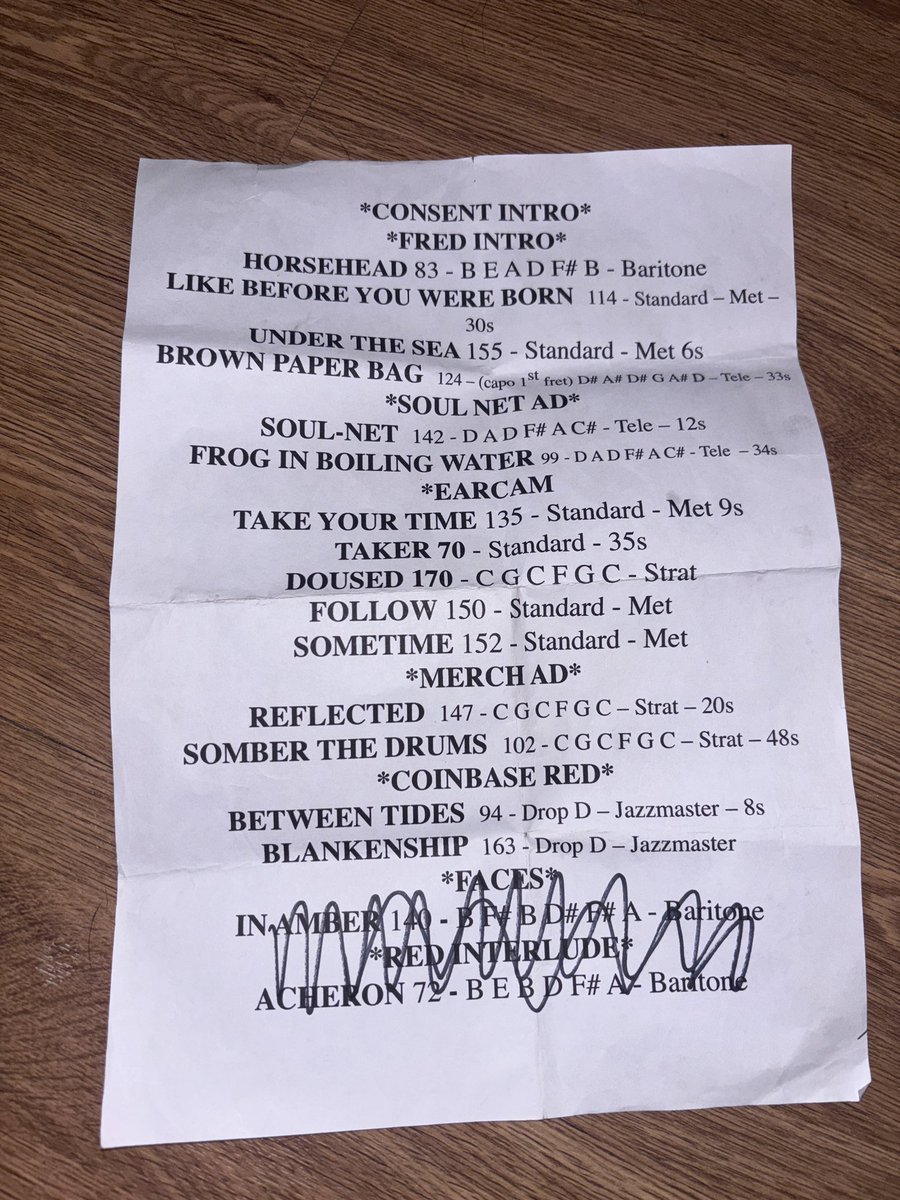 *CONSENT INTRO*
*FRED INTRO*
HORSEHEAD 83 - B E A D F# B - Baritone
LIKE BEFORE YOU WERE BORN 114 - Standard – Met –
30s
UNDER THE SEA 155 - Standard - Met 6s
BROWN PAPER BAG 124 – (capo 1st fret) D# A# D# G A# D – Tele – 33s
*SOUL NET AD*
SOUL-NET 142 - D A D F# A C# - Tele – 12s
FROG IN BOILING WATER 99 - D A D F# A C# - Tele – 34s
*EARCAM
TAKE YOUR TIME 135 - Standard - Met 9s
TAKER 70 - Standard - 35s
DOUSED 170 - C G C F G C - Strat
FOLLOW 150 - Standard - Met
SOMETIME 152 - Standard - Met
*MERCH AD*
REFLECTED 147 - C G C F G C – Strat – 20s
SOMBER THE DRUMS 102 - C G C F G C – Strat – 48s
*COINBASE RED*
BETWEEN TIDES 94 - Drop D – Jazzmaster – 8s
BLANKENSHIP 163 - Drop D – Jazzmaster
*FACES*
IN AMBER 140 - B F# B D# F# A - Baritone
*RED INTERLUDE*
ACHERON 72 - B E B D F# A - Baritone